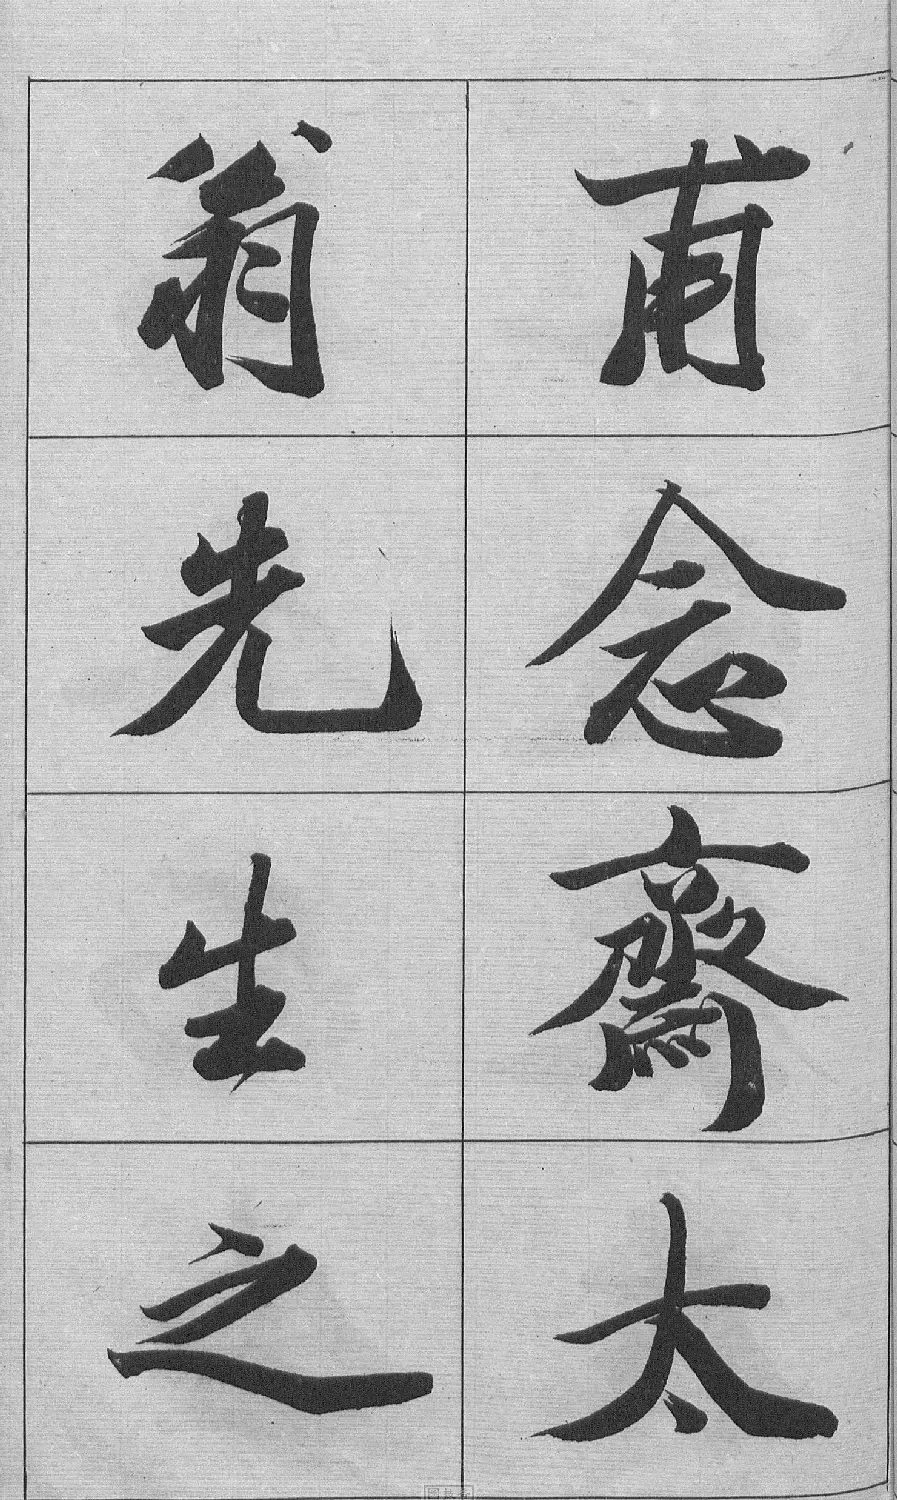 甫念齋太
翁先生之